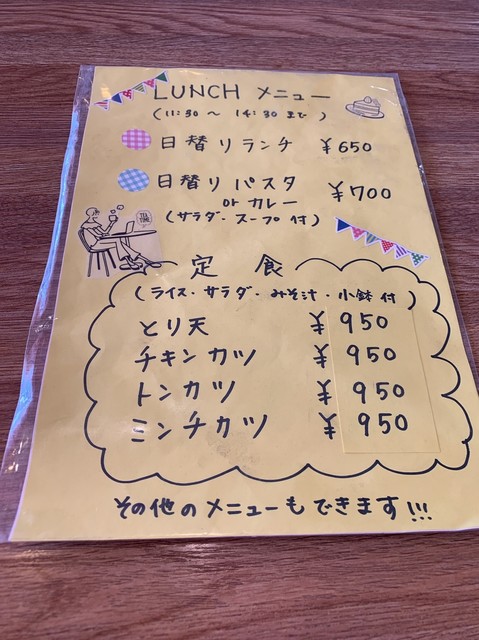 LUNCH メニュー
(11:30 ～ 14:30 まで)
日替りランチ ¥650
日替りパスタ ¥700
or カレー
(サラダ・スープ付)
定食
(ライス・サラダ・みそ汁・小鉢付)
とり天 ¥950
チキンカツ ¥950
トンカツ ¥950
ミンチカツ ¥950
その他のメニューもできます!!!